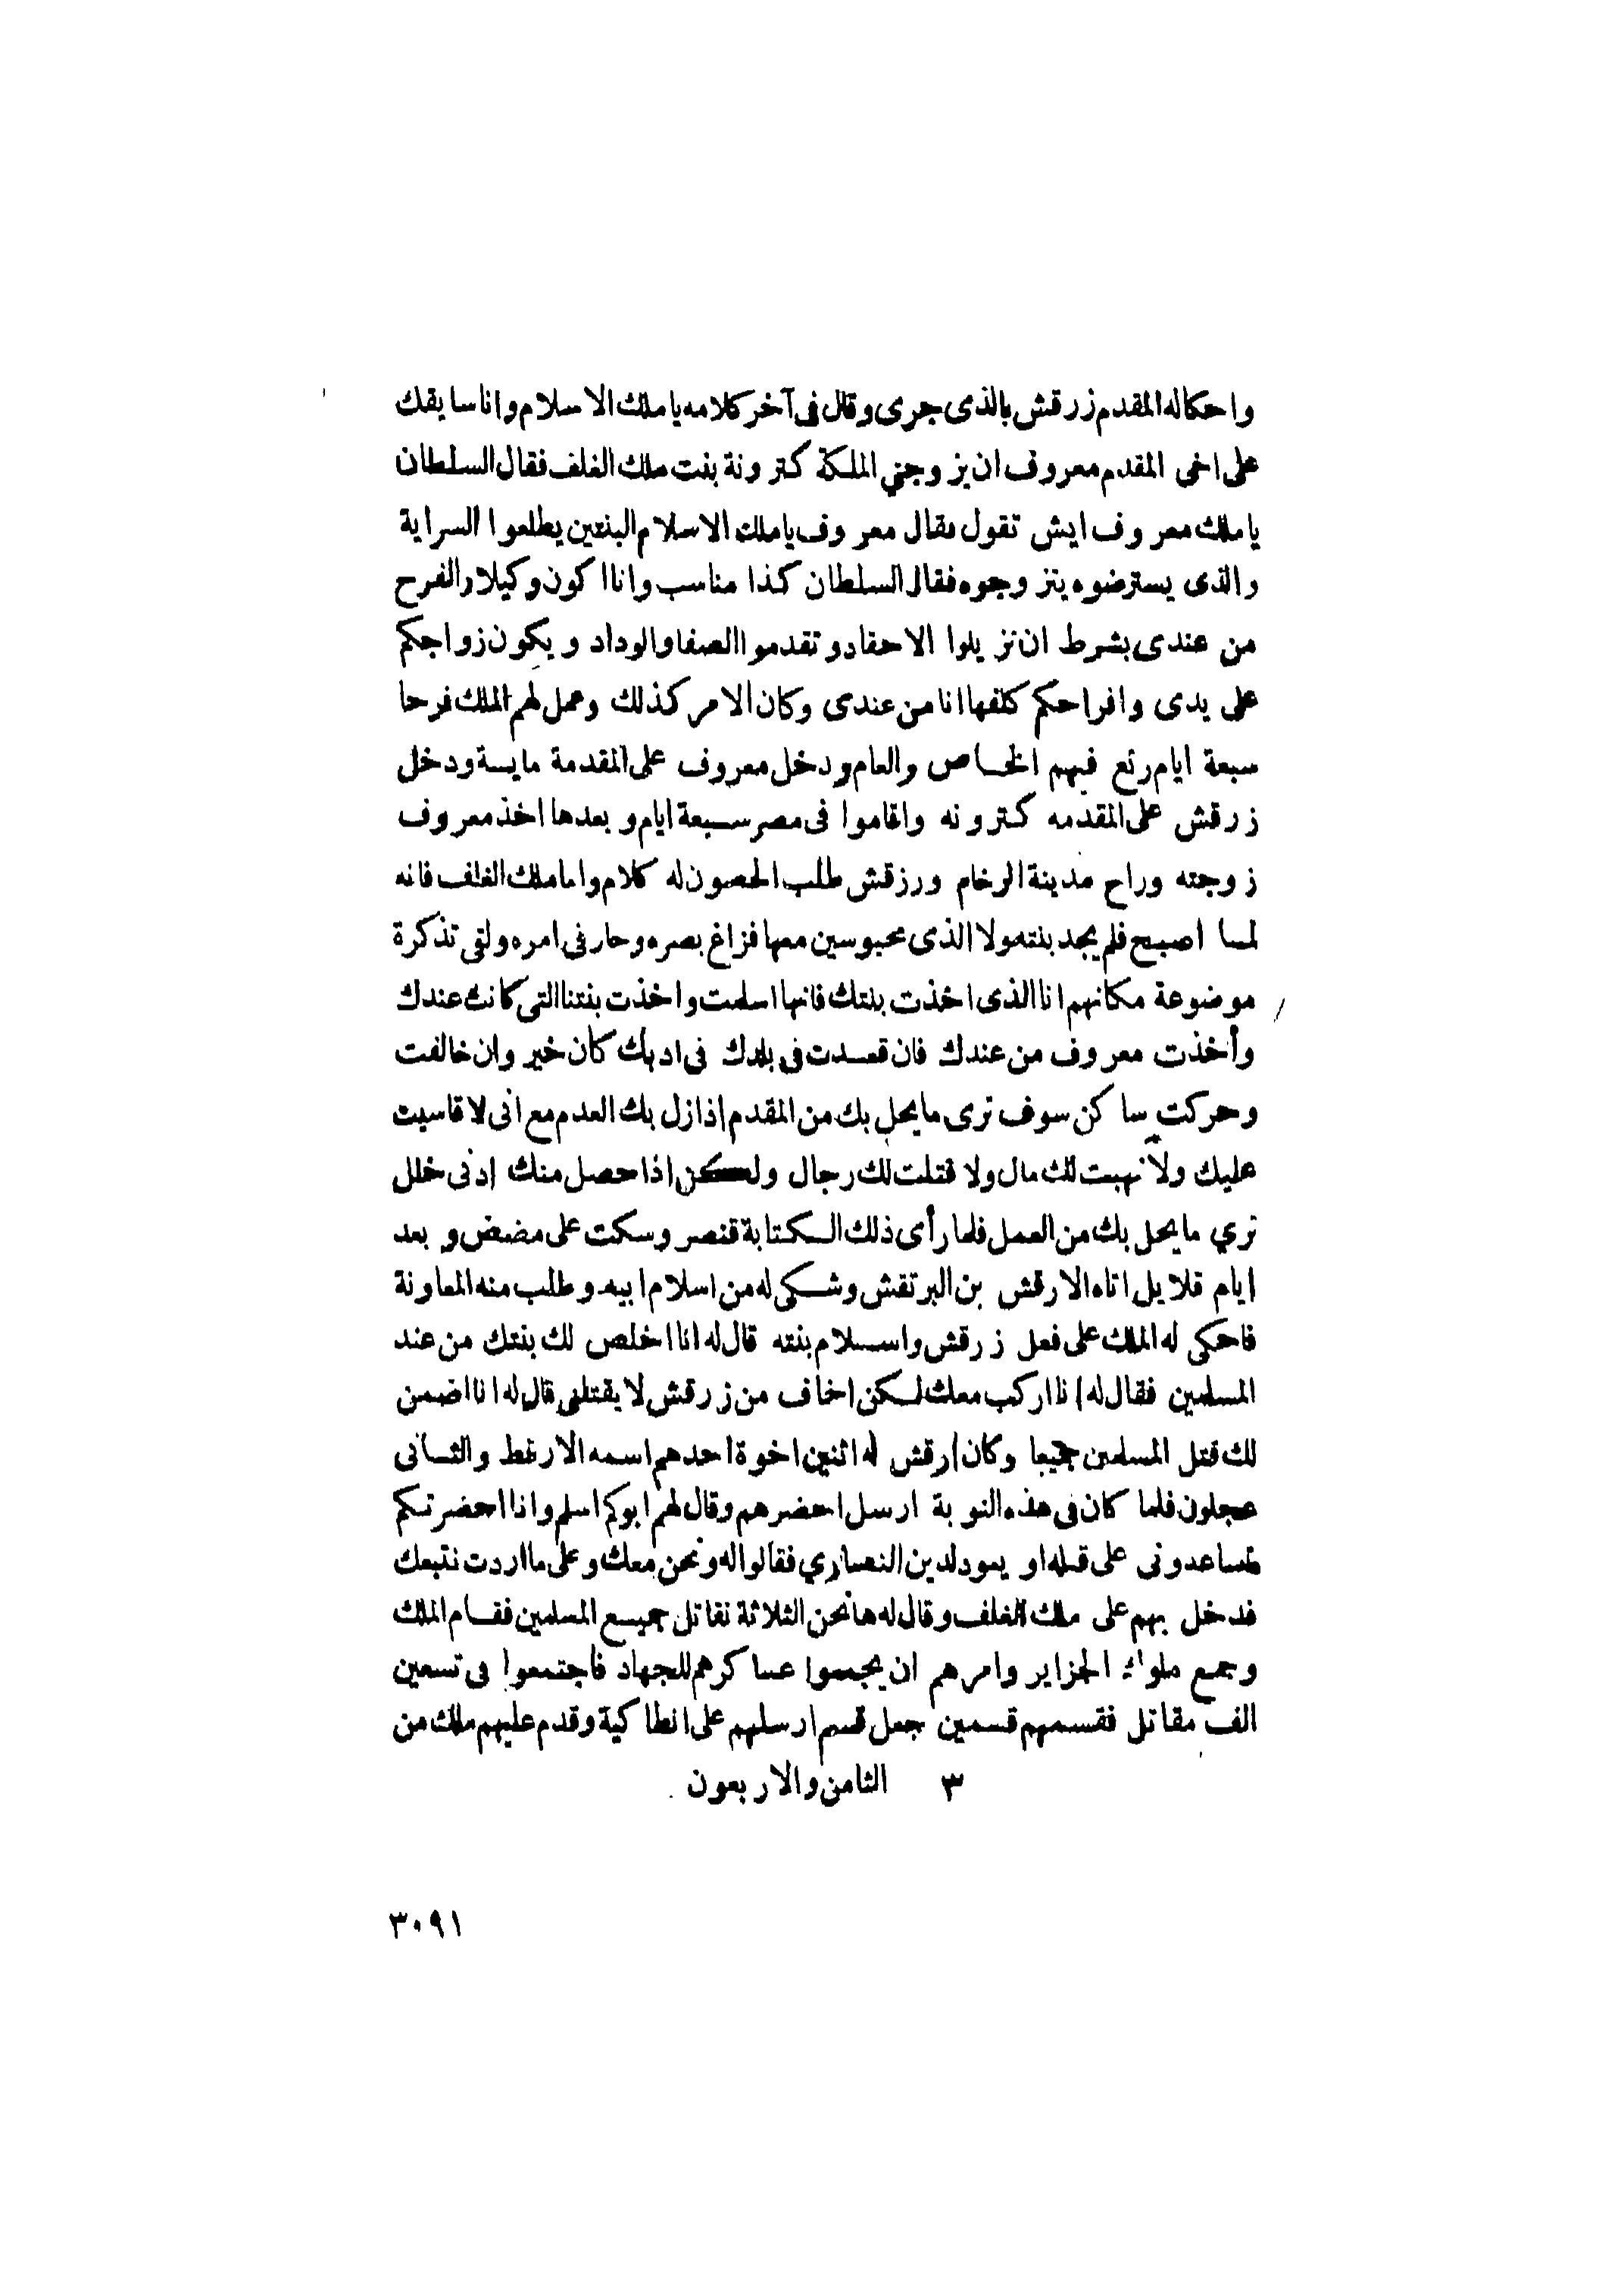 واحكاله المقدم زرقش بالذى جرى وقال فى آخر كلامه ياملك الاسلام وانا سايقك
على اخى المقدم معروف ان يزوجنى الملكة كترونة بنت ملك الغلف فقال السلطان
ياملك معروف ايش تقول فقال معروف ياملك الاسلام البنتين يطلعوا السراية
والذى يسترضوه يتزوجوه فقال السلطان كذا مناسب وانا اكون وكيلا والفرح
من عندى بشرط ان تزيلوا الاحقاد وتقدموا الصفا والوداد ويكون زواجكم
على يدى وافراحكم كلفها انا من عندى وكان الامر كذلك وعمل لهم الملك فرحا
سبعة ايام رتع فيهم الخاص والعام ودخل معروف على المقدمة مايسة ودخل
زرقش على المقدمه كترونه واقاموا فى مصر سبعة ايام وبعدها اخذ معروف
زوجته وراح مدينة الرخام ورزقش طلب الحصون له كلام واما ملك الغلف فانه
لما اصبح فلم يجد بنته ولا الذى محبوسين معها فزاغ بصره وحار فى امره ولقى تذكرة
موضوعة مكانهم انا الذى اخذت بنتك فانها اسلمت واخذت بنتنا التى كانت عندك
وأخذت معروف من عندك فان قعدت فى بلدك فى ادبك كان خير وان خالفت
وحركت ساكن سوف ترى مايحل بك من المقدم اذا زل بك العدم مع انى لا قاسيت
عليك ولا نهبت لك مال ولا قتلت لك رجال ولكن اذا حصل منك ادنى خلل
تري مايحل بك من العمل فلما رأى ذلك الكتابة قنصر وسكت على مضض وبعد
ايام قلايل اتاه الارقش بن البرتقش وشكى له من اسلام ابيه وطلب منه المعاونة
فاحكى له الملك على فعل زرقش واسلام بنته قال له انا اخلص لك بنتك من عند
المسلمين فقال له انا اركب معك لكن اخاف من زرقش لا يقتلنى قال له انا اضمن
لك قتل المسلمين جميعا وكان ارقش له اثنين اخوة احدهم اسمه الارغط والثانى
عجلون فلما كان فى هذه النوبة ارسل احضرهم وقال لهم ابوكم اسلم وانا احضرتكم
تساعدونى على قتله او يعود لدين النصاري فقالوا له ونحن معك وعلى ما اردت نتبعك
فدخل بهم على ملك الغلف وقال له ها نحن الثلاثة نقاتل جميع المسلمين فقام الملك
وجمع ملوك الجزاير وامرهم ان يجمعوا عساكرهم للجهاد فاجتمعوا فى تسعين
الف مقاتل فقسمهم قسمين جعل قسم ارسلهم على انطاكية وقدم عليهم ملك من
٣ الثامن والاربعون
٣٠٩١